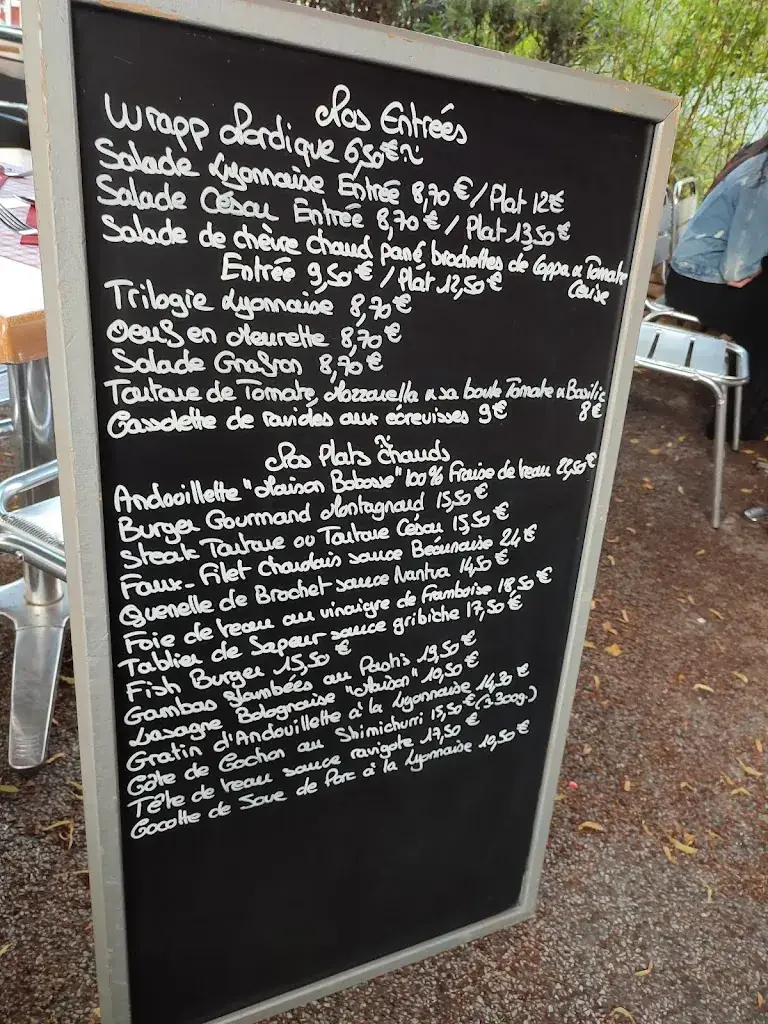 Nos Entrées
Wrapp Nordique 6,50€
Salade Lyonnaise Entrée 8,70€/Plat 12€
Salade César Entrée 8,70€ / Plat 13,50€
Salade de chèvre chaud pané brochettes de Coppa & Tomate
Cerise
Entrée 9,50€ / Plat 12,50€
Trilogie Lyonnaise 8,70€
Oeufs en Meurette 8,70€
Salade Gnafron 8,70€
Tartare de Tomate, Mozzarella & sa boule Tomate & Basilic
8€
Cassolette de ravioles aux écrevisses 9€
Nos Plats Chauds
Andouillette "Maison Bobosse" 100% Fraise de veau 22,50€
Burger Gourmand Montagnard 15,50€
Steak Tartare ou Tartare César 15,50€
Faux-Filet Charolais sauce Béarnaise 24€
Quenelle de Brochet sauce Nantua 14,50€
Foie de veau au vinaigre de Framboise 18,50€
Tablier de Sapeur sauce gribiche 17,50€
Fish Burger 15,50€
Gambas flambées au Pastis 19,50€
Lasagne Bolognaise "Maison" 10,50€
Gratin d'Andouillette à la Lyonnaise 14,30€
Côte de Cochon au Shimichurri 15,50€ (±300g.)
Tête de veau sauce ravigote 17,50€
Cocotte de Joue de Porc à la Lyonnaise 19,50€